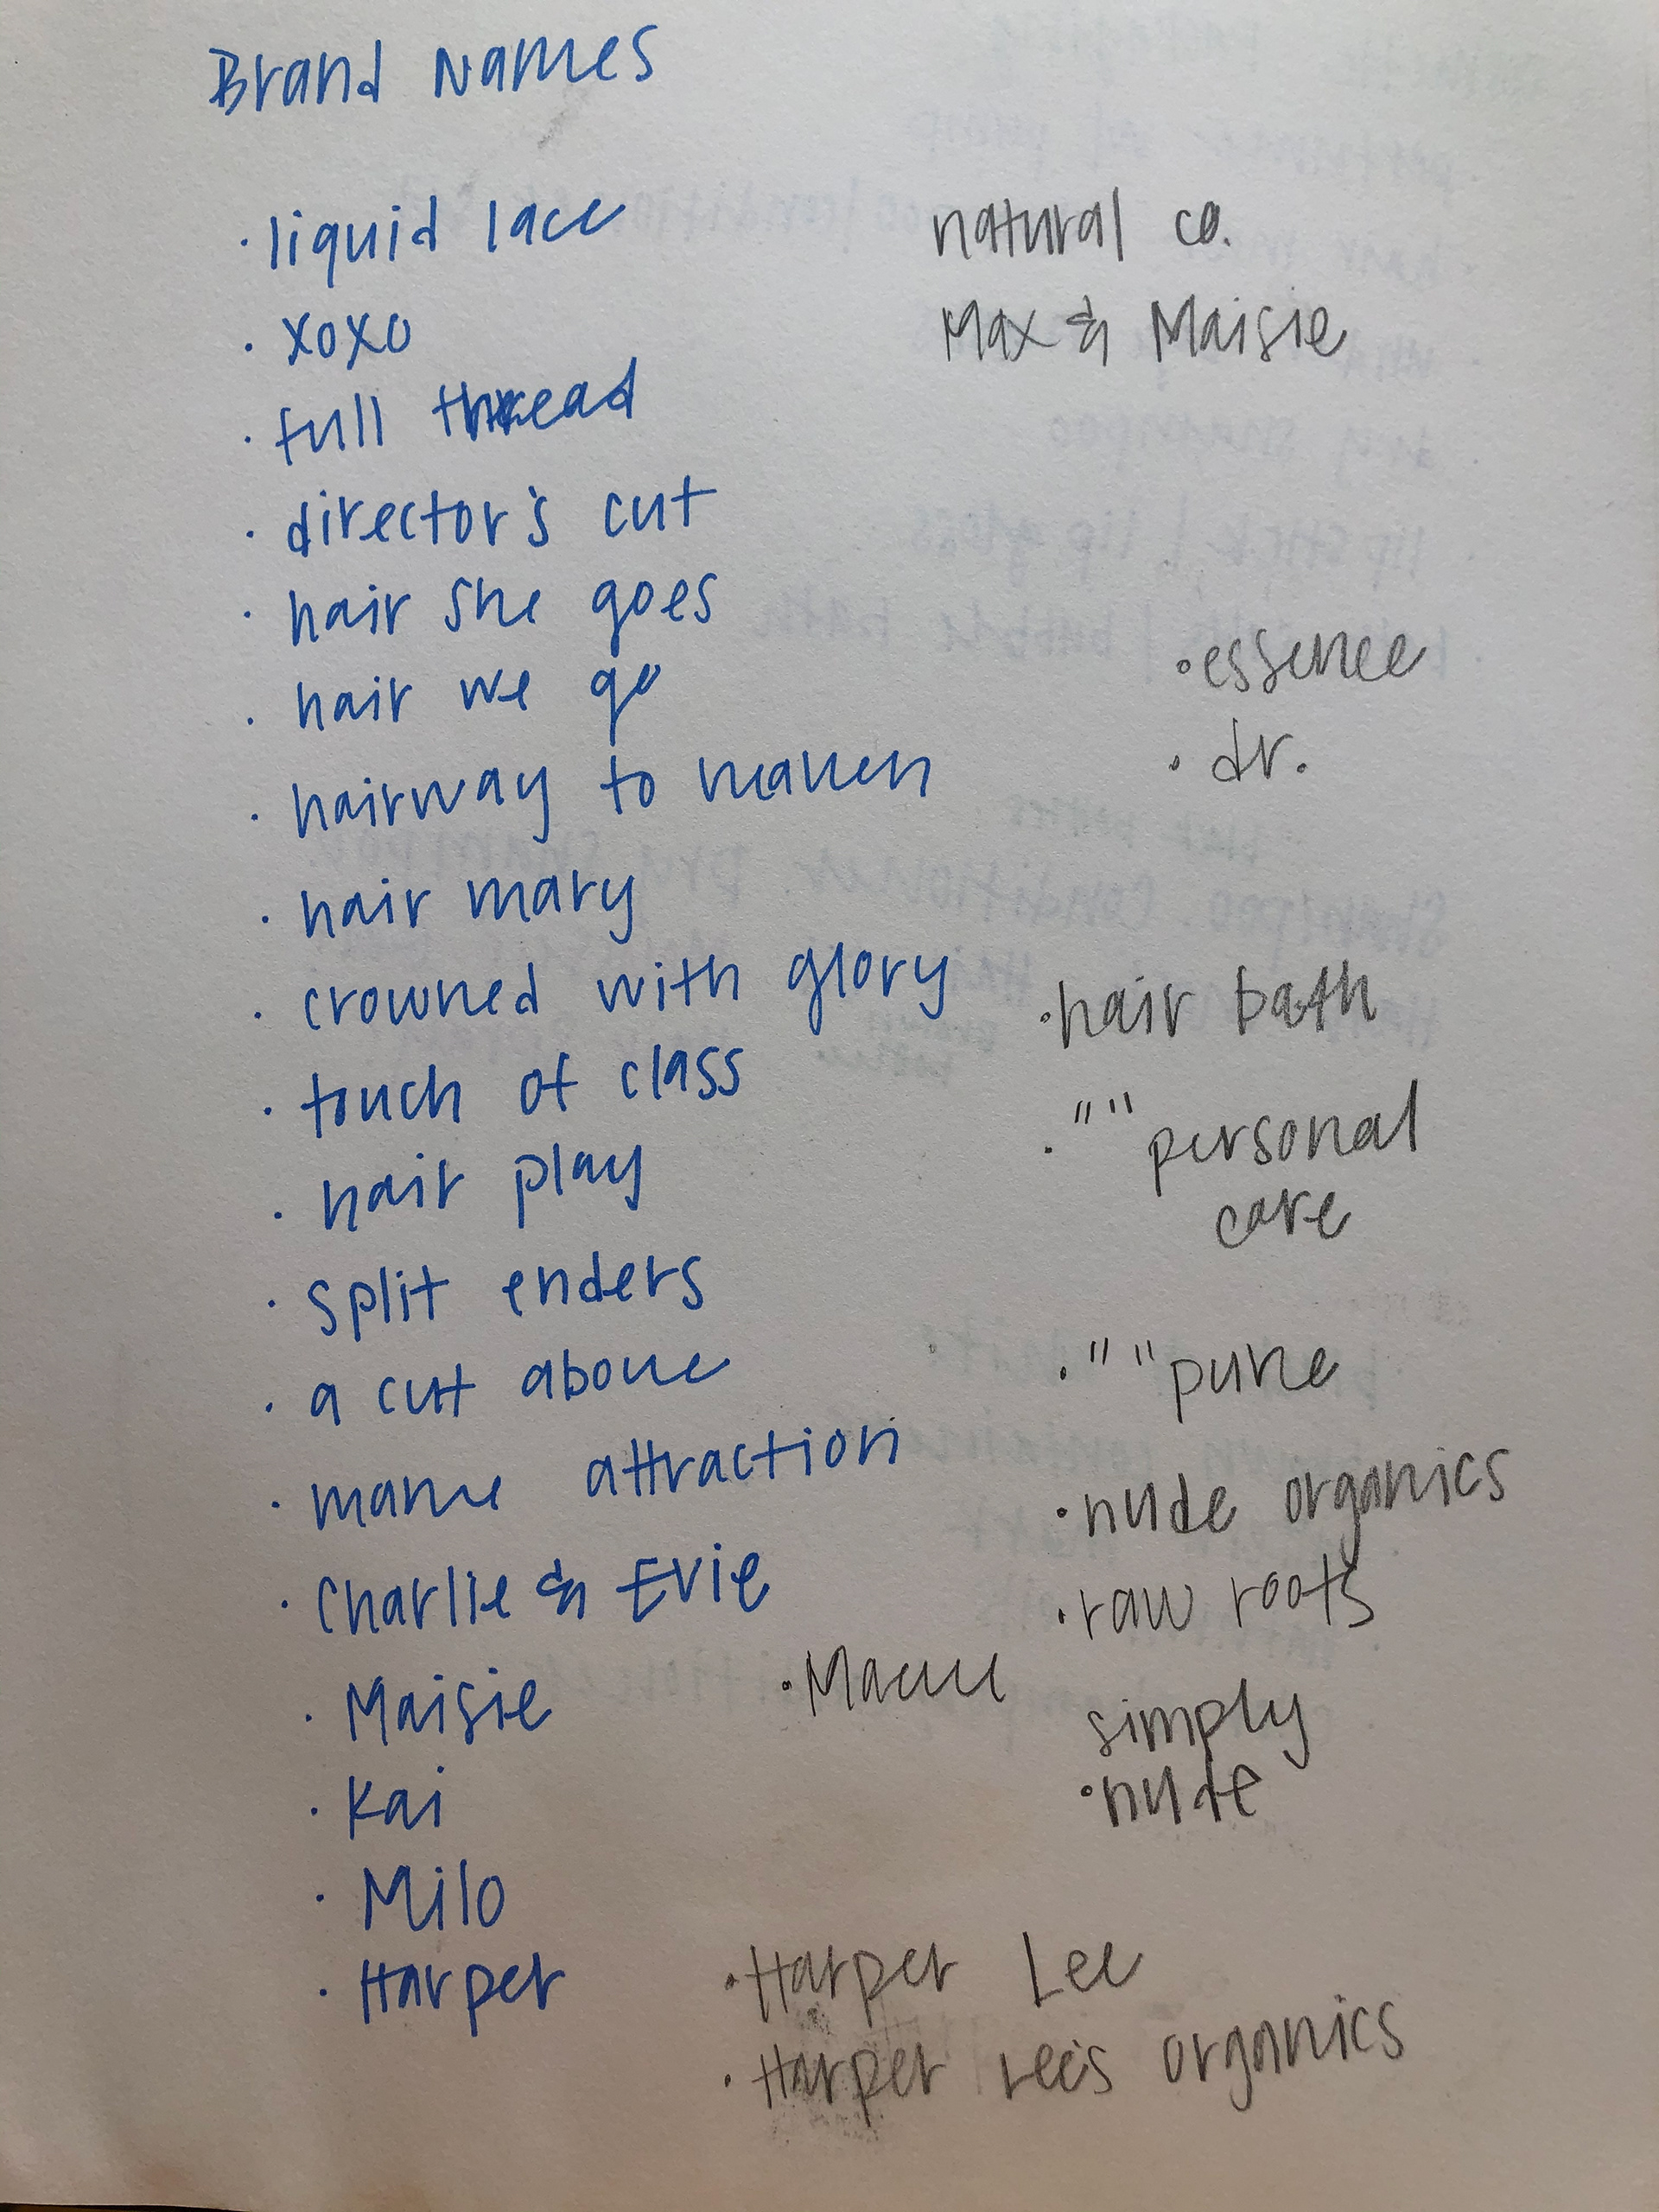 Brand Names
· liquid lace
· xoxo
· full thread
· director's cut
· hair she goes
· hair we go
· hairway to heaven
· hair mary
· crowned with glory
· touch of class
· hair play
· split enders
· a cut above
· mane attraction
· Charlie & Evie
· Maisie
· Kai
· Milo
· Harper
natural co.
Max & Maisie
· essence
· dr.
· hair bath
· " " personal
care
· " " pure
· nude organics
· raw roots
simply
· nude
· Harper Lee
· Harper Lee's organics